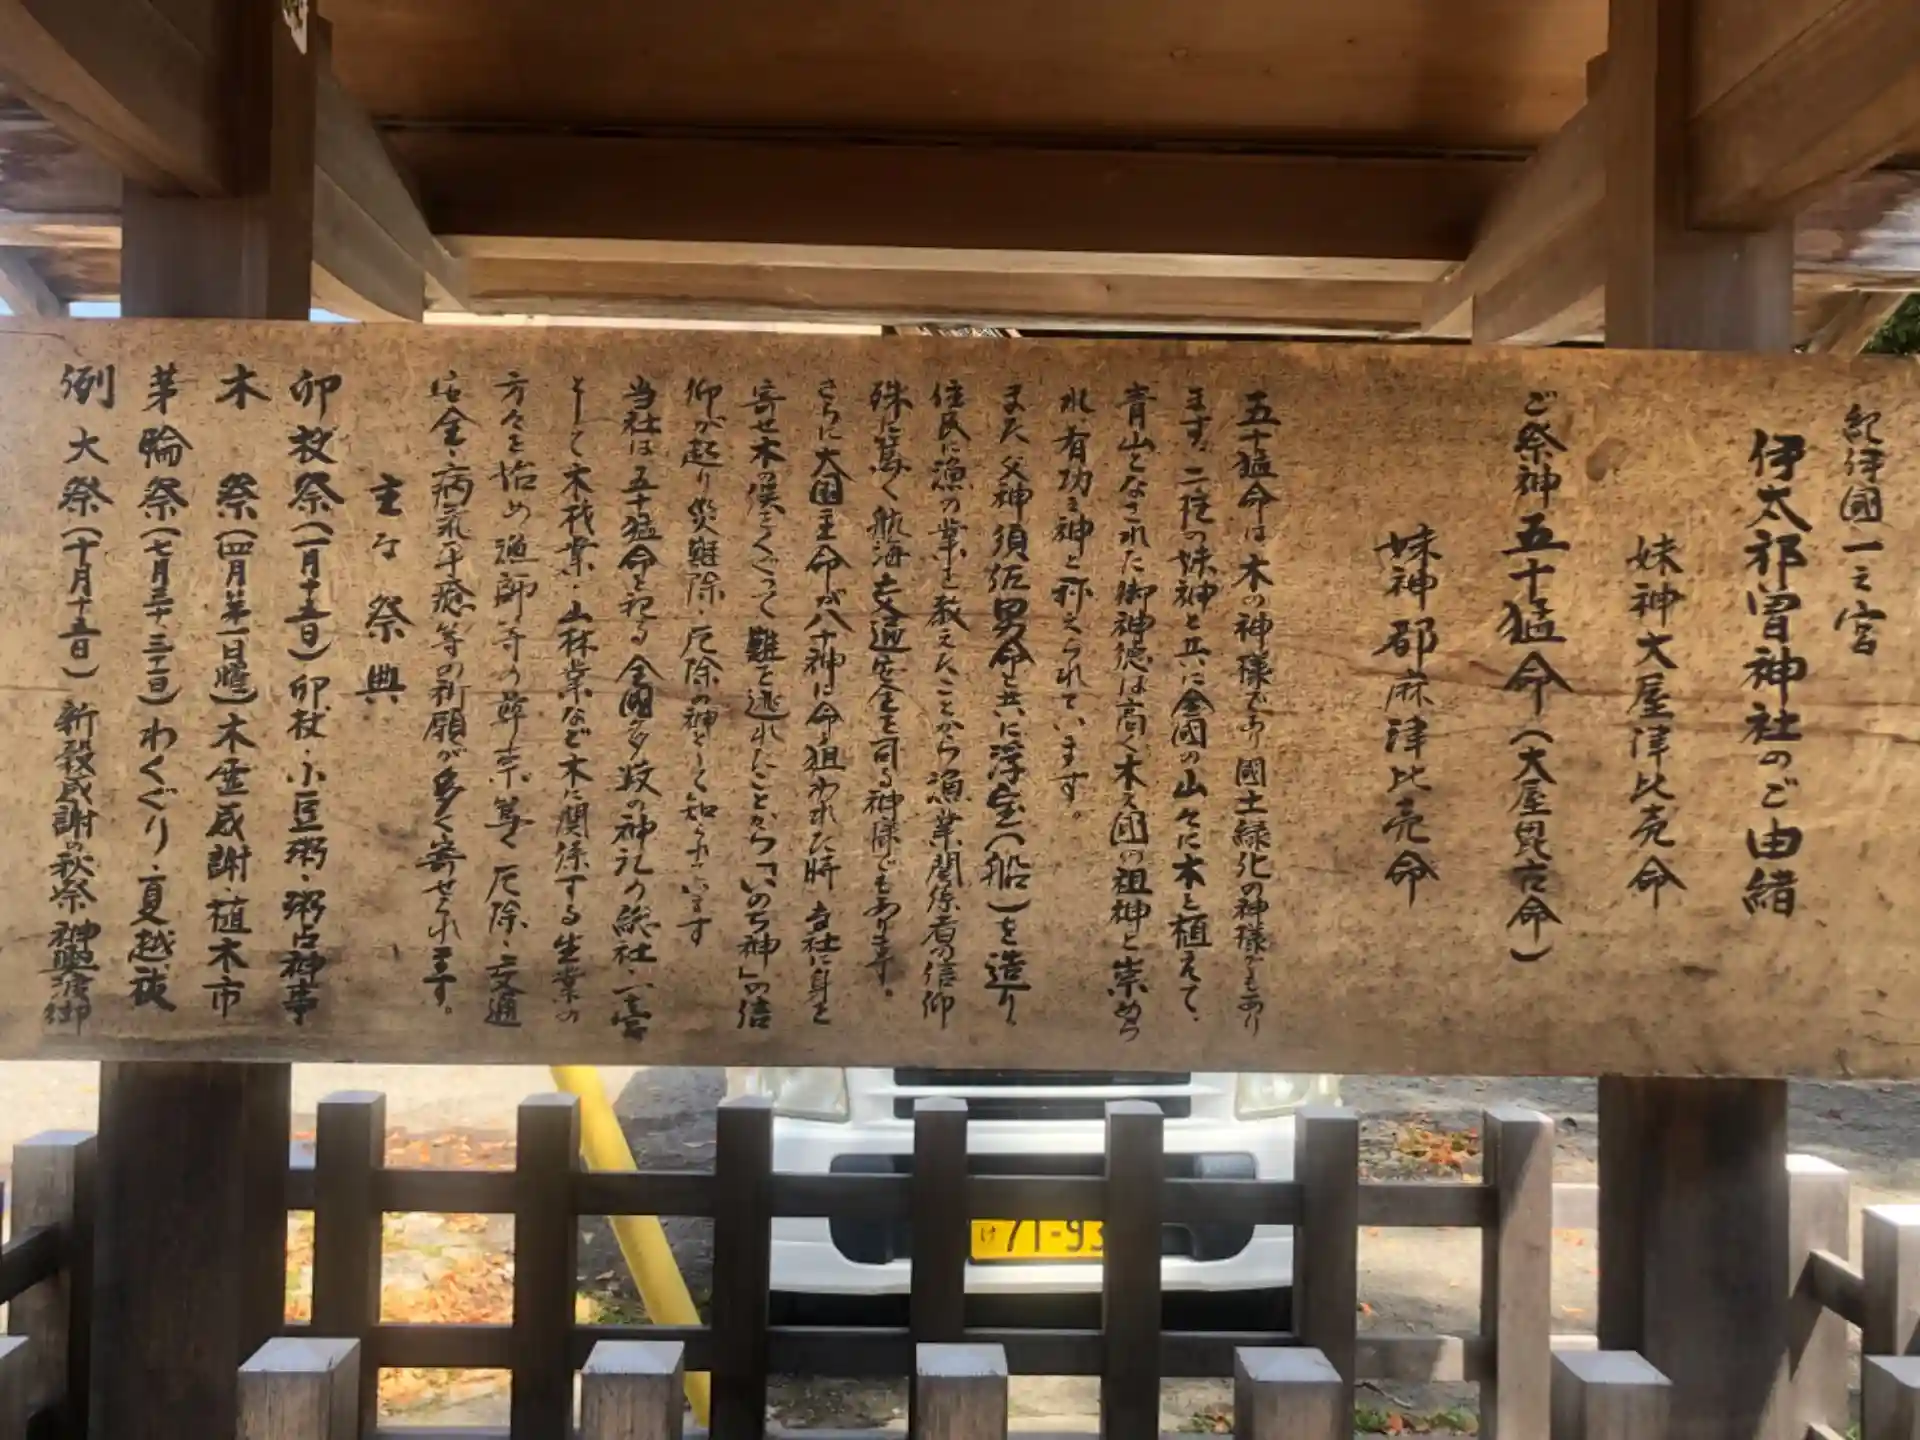 紀伊國一之宮
伊太祁曽神社のご由緒
妹神大屋津比売命
ご祭神五十猛命(大屋毘古命)
妹神都麻津比売命
五十猛命は木の神様であり國土緑化の神様でもあり
ます。二柱の妹神と共に全國の山々に木を植えて、
青山となされた御神徳は高く木の國の祖神と崇めら
れ有功の神と称えられています。
また父神須佐男命と共に浮宝(船)を造り、
住民に漁の業を教えたことから漁業関係者の信仰
殊に篤く航海交通安全を司る神様でもあります。
さらに大国主命が八十神に命を狙われた時 当社に身を
寄せ木の俣をくぐって難を逃れたことから「いのち神」の信
仰が起り災難除・厄除の神として知られています
当社は五十猛命を祀る全國多数の神社の総社・一宮
として木材業・山林業など木に関係する生業の
方々を始め漁師等の 篤く 厄除・交通
安全・病気平癒等の祈願が多く寄せられます。
主な祭典
卯杖祭(一月十五日)卯杖・小豆粥・粥占神事
木祭(四月第一日曜)木霊感謝・植木市
茅輪祭(七月三十・三十一日)わくぐり・夏越祓
例大祭(十月十五日)新穀感謝の秋祭 神輿渡御
け 71-93